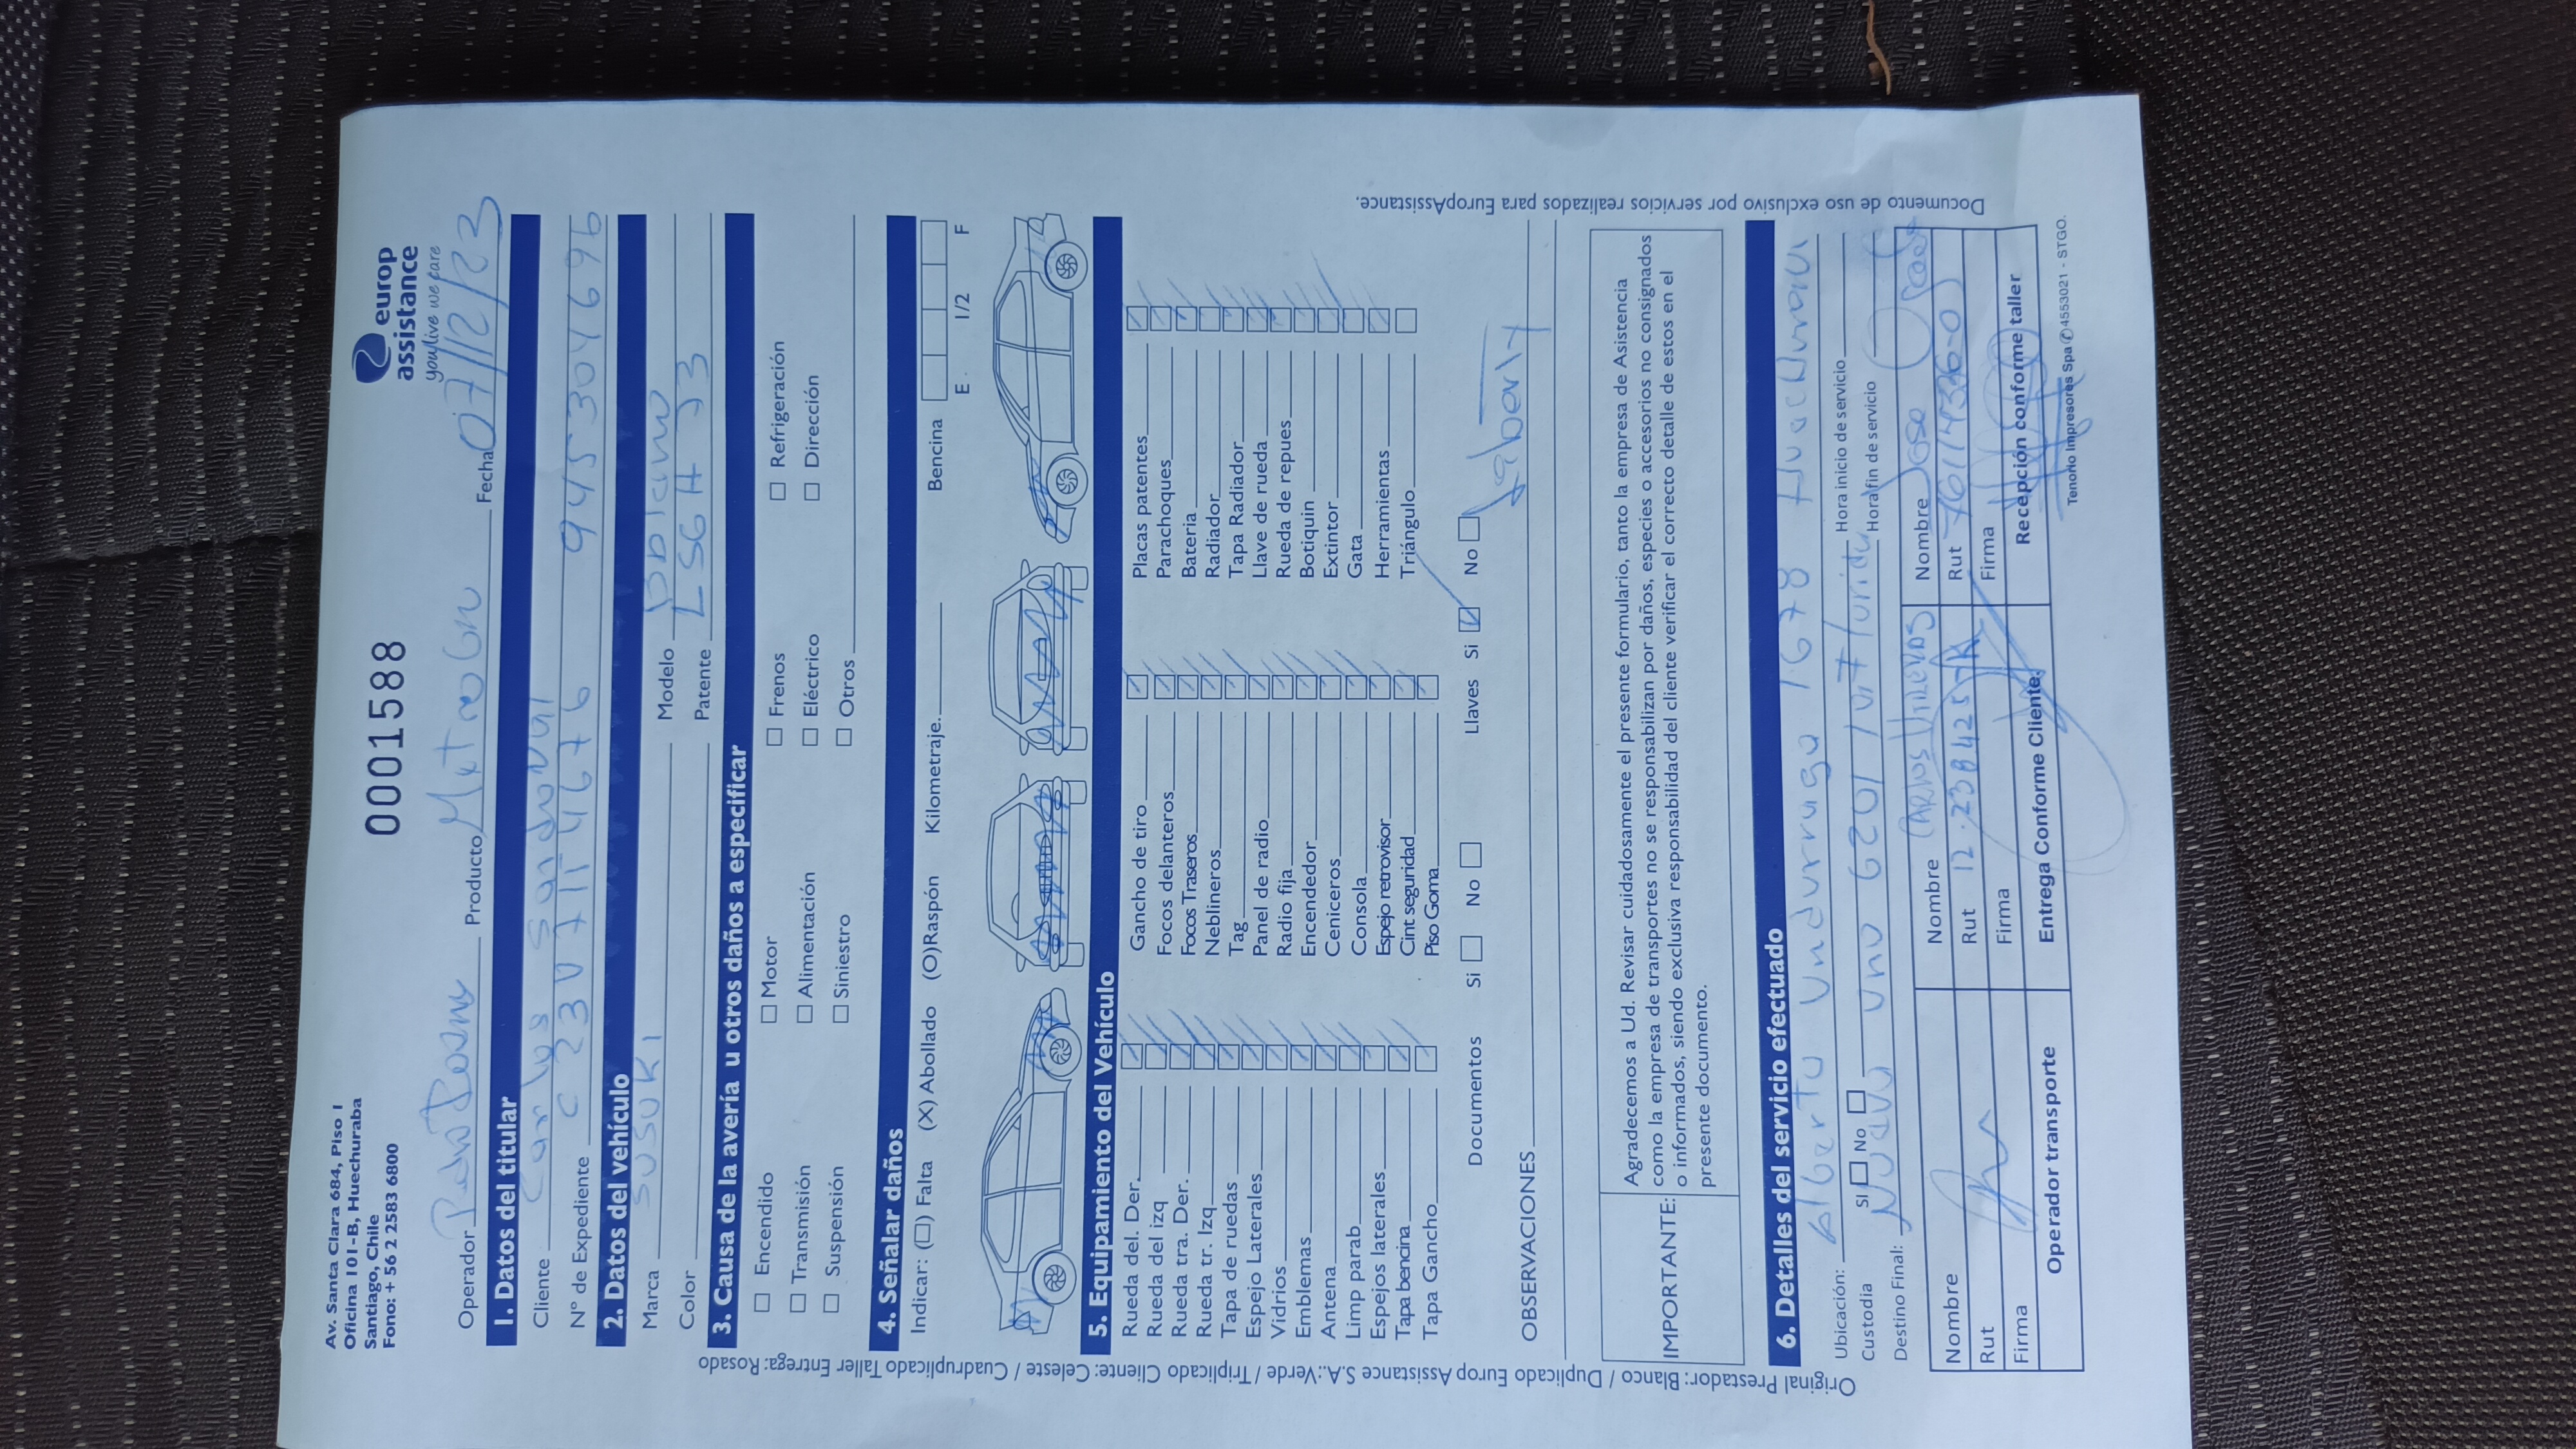 Av. Santa Clara 684, Piso 1
Oficina 101-B, Huechuraba
Santiago, Chile
Fono: + 56 2 2583 6800
0001588
europ
assistance
you live we care
Operador Producto Fecha 07/12/23
1. Datos del titular
Cliente Carlos Sandoval
N° de Expediente 945304696
2. Datos del vehículo
Marca SUSUKI Modelo
Color Patente LSGH 33
3. Causa de la avería u otros daños a especificar
Encendido Motor Frenos Refrigeración
Transmisión Alimentación Eléctrico Dirección
Suspensión Siniestro Otros
4. Señalar daños
Indicar: (□) Falta (X) Abollado (O)Raspón Kilometraje. Bencina
E 1/2 F
5. Equipamiento del Vehículo
Rueda del. Der. Gancho de tiro Placas patentes
Rueda del izq Focos delanteros Parachoques
Rueda tra. Der. Focos Traseros Bateria
Rueda tr. Izq Neblineros Radiador
Tapa de ruedas Tag Tapa Radiador
Espejo Laterales Panel de radio Llave de rueda
Vidrios Radio fija Rueda de repues
Emblemas Encendedor Botiquin
Antena Ceniceros Extintor
Limp parab Consola Gata
Espejos laterales Espejo retrovisor Herramientas
Tapa bencina Cint seguridad Triángulo
Tapa Gancho Piso Goma
Documentos Si No Llaves Si No
OBSERVACIONES
IMPORTANTE:
Agradecemos a Ud. Revisar cuidadosamente el presente formulario, tanto la empresa de Asistencia
como la empresa de transportes no se responsabilizan por daños, especies o accesorios no consignados
o informados, siendo exclusiva responsabilidad del cliente verificar el correcto detalle de estos en el
presente documento.
6. Detalles del servicio efectuado
Ubicación: Undurraga 1678
Custodia SI No Hora inicio de servicio
Destino Final: uno 6201 Hora fin de servicio
Nombre Nombre CARLOS Nombre Jose
Rut Rut 12.238425-K Rut
Firma Firma Firma
Operador transporte Entrega Conforme Cliente Recepción conforme taller
Tenorio Impresores Spa ✆4553021 - STGO.
Original Prestador: Blanco / Duplicado Europ Assistance S.A.: Verde / Triplicado Cliente: Celeste / Cuadruplicado Taller Entrega: Rosado
Documento de uso exclusivo por servicios realizados para EuropAssistance.